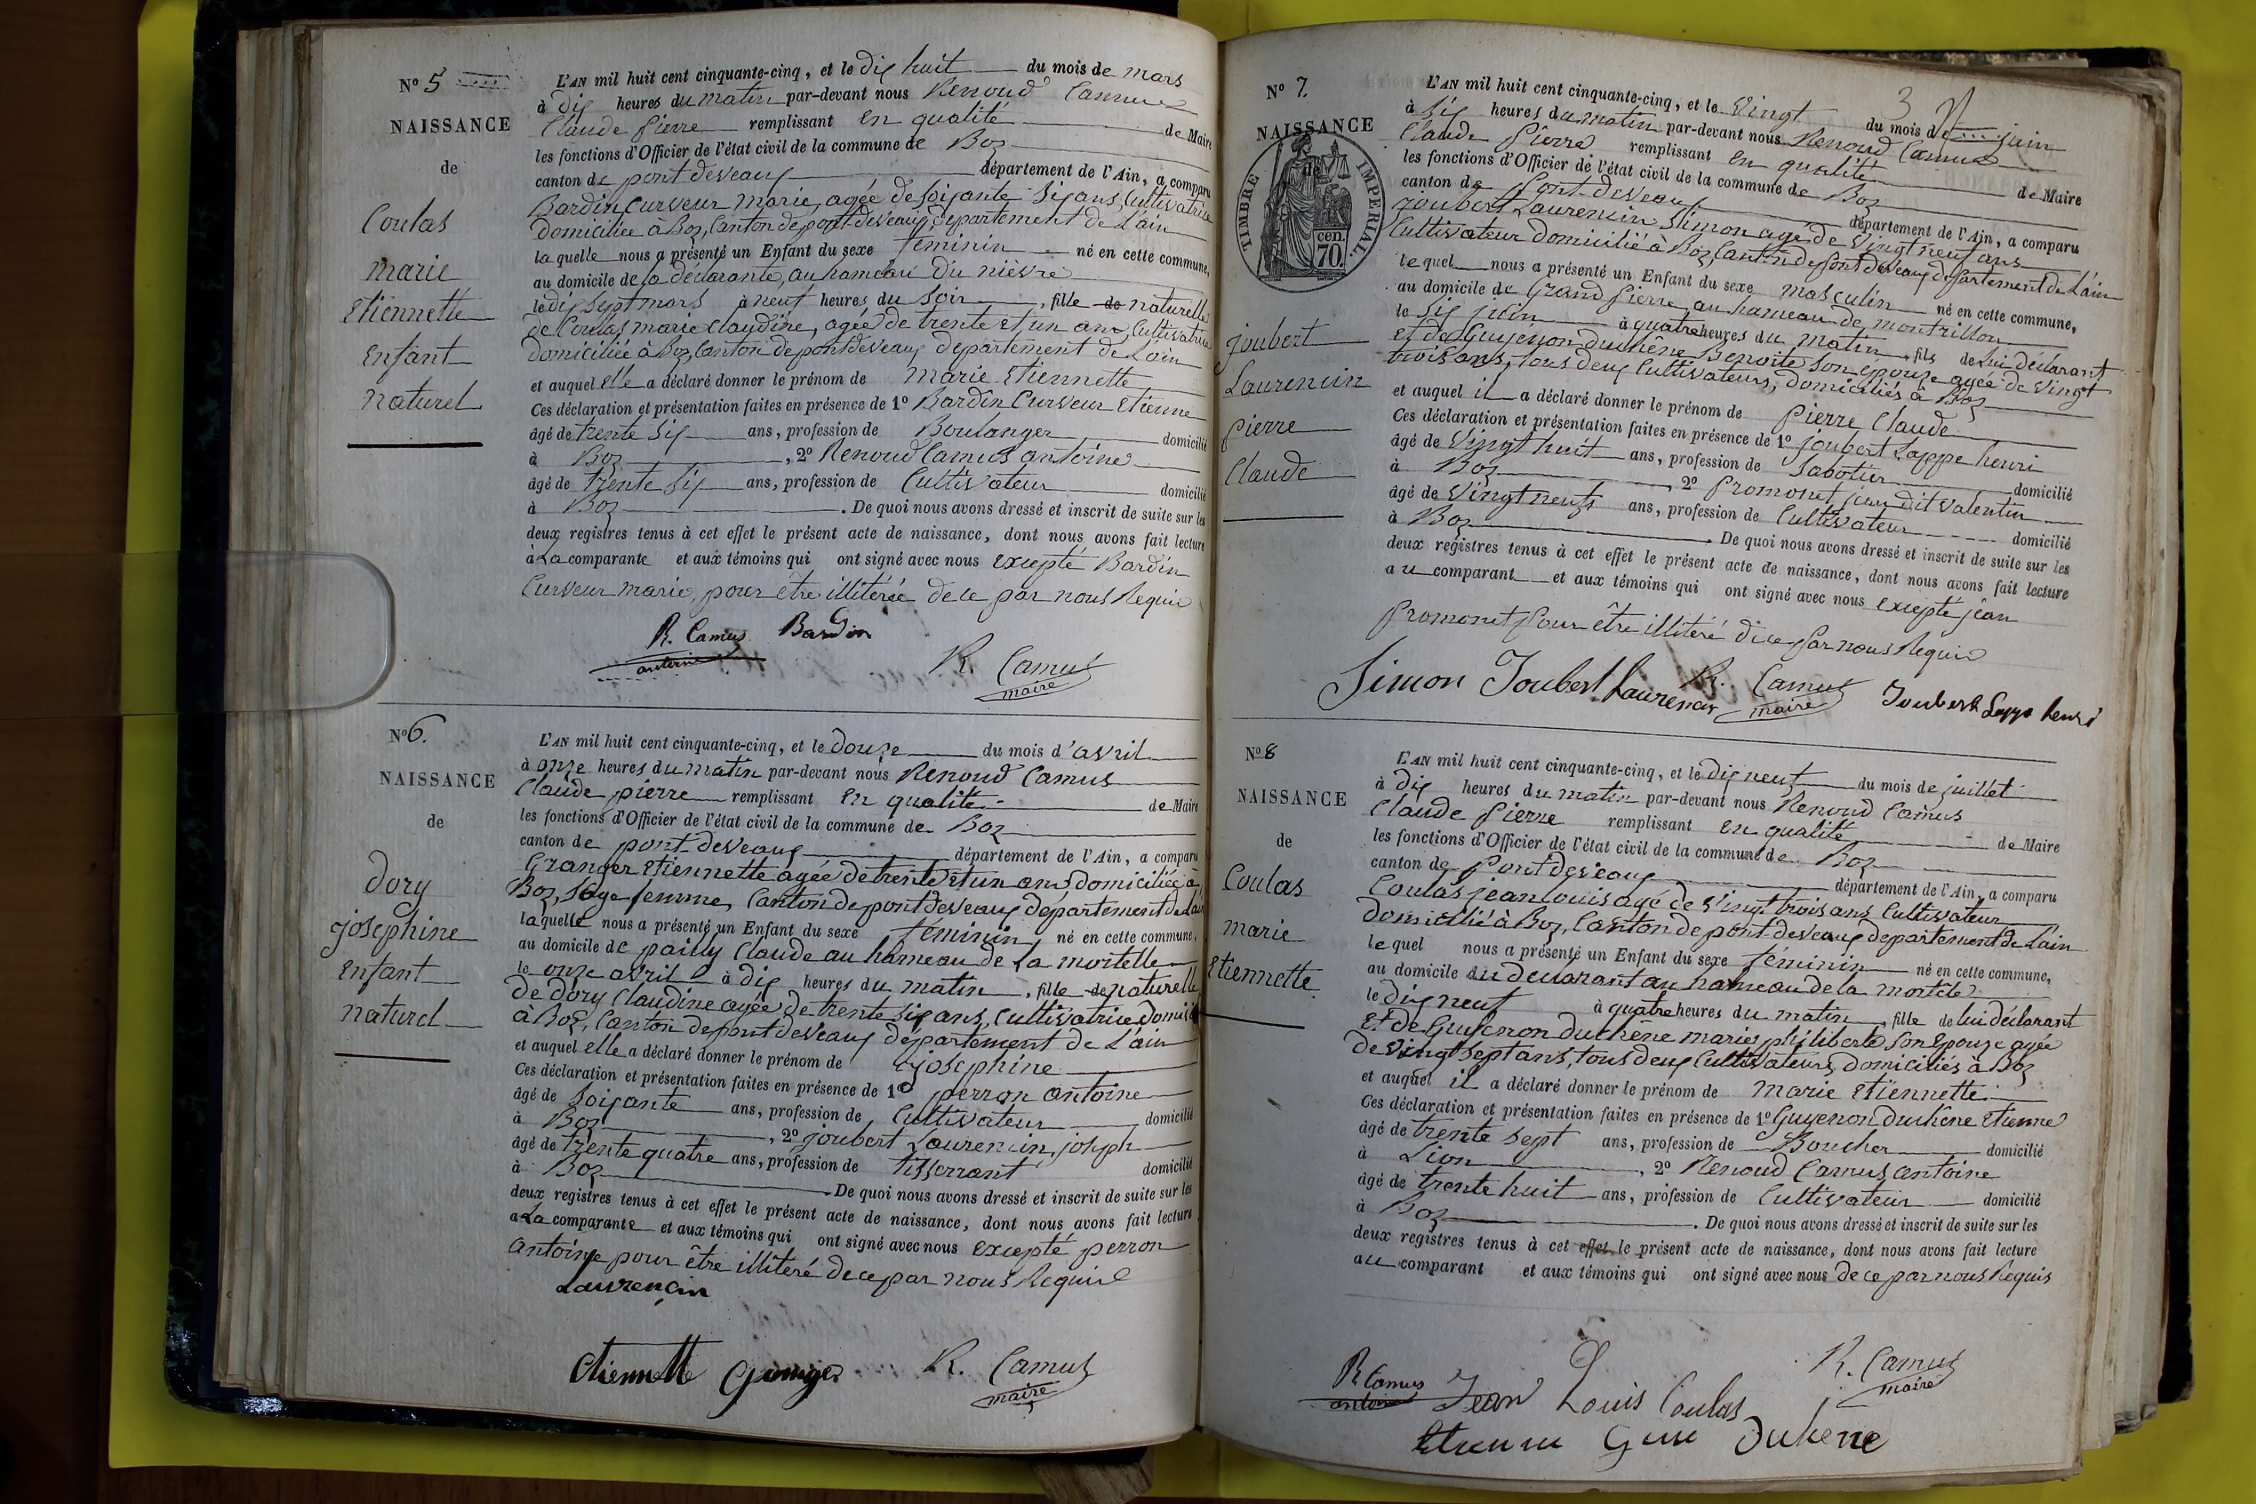 N° 5
NAISSANCE
de
Coulas
marie
Etiennette
Enfant
naturel
L'AN mil huit cent cinquante-cinq, et le dix huit du mois de mars
à dix heures du matin par-devant nous Renoud Camus
Claude pierre remplissant en qualité de Maire
les fonctions d'Officier de l'état civil de la commune de Boz
canton de pont devaux département de l'Ain, a comparu
Bardin Curveur marie, agée de soixante six ans, Cultivatrice
domiciliée à Boz, Canton de pont devaux, département de L'ain
laquelle nous a présenté un Enfant du sexe féminin né en cette commune,
au domicile de la déclarante, au hameau du nièvre
le dix sept mars à neuf heures du soir, fille de naturelle
de Coulas marie claudine, agée de trente et un ans Cultivatrice
domiciliée à Boz, Canton de pont devaux département de Lain
et auquel elle a déclaré donner le prénom de marie Etiennette
Ces déclaration et présentation faites en présence de 1° Bardin Curveur Etienne
âgé de trente six ans, profession de Boulanger domicilié
à Boz, 2° Renoud Camus antoine
âgé de trente six ans, profession de Cultivateur domicilié
à Boz. De quoi nous avons dressé et inscrit de suite sur les
deux registres tenus à cet effet le présent acte de naissance, dont nous avons fait lecture
à La comparante et aux témoins qui ont signé avec nous excepté Bardin
Curveur marie, pour être illitérée de ce par nous Requis
R. Camus Bardin
antoine
R. Camus
maire
N° 6.
NAISSANCE
de
dory
josephine
enfant
naturel
L'AN mil huit cent cinquante-cinq, et le douze du mois d'avril
à onze heures du matin par-devant nous Renoud Camus
Claude pierre remplissant en qualité de Maire
les fonctions d'Officier de l'état civil de la commune de Boz
canton de pont devaux département de l'Ain, a comparu
Granger Etiennette agée de trente et un ans domiciliée à
Boz, sage femme, Canton de pont devaux département de Lain
laquelle nous a présenté un Enfant du sexe féminin né en cette commune,
au domicile de pailly Claude au hameau de La mortelle
le onze avril à dix heures du matin, fille de naturelle
de dory Claudine agée de trente six ans, Cultivatrice domicilié
à Boz, Canton de pont devaux département de L'ain
et auquel elle a déclaré donner le prénom de josephine
Ces déclaration et présentation faites en présence de 1° perron antoine
âgé de soixante ans, profession de Cultivateur domicilié
à Boz, 2° joubert Laurencin joseph
âgé de trente quatre ans, profession de tisserrant domicilié
à Boz. De quoi nous avons dressé et inscrit de suite sur les
deux registres tenus à cet effet le présent acte de naissance, dont nous avons fait lecture
a La comparante et aux témoins qui ont signé avec nous excepté perron
antoine pour être illitéré de ce par nous Requis
Laurencin
Etiennette Granger R. Camus
maire
3
N° 7.
NAISSANCE
de
TIMBRE IMPERIAL
70 cen.
joubert
Laurencin
Pierre
Claude
L'AN mil huit cent cinquante-cinq, et le vingt du mois de juin
à six heures du matin par-devant nous Renoud Camus
Claude Pierre remplissant en qualité de Maire
les fonctions d'Officier de l'état civil de la commune de Boz
canton de Pont devaux département de l'Ain, a comparu
joubert Laurencin Simon agé de vingt neuf ans
Cultivateur domicilié à Boz, Canton de Pont devaux département de L'ain
lequel nous a présenté un Enfant du sexe masculin né en cette commune,
au domicile de Grand Pierre au hameau de montrillon
le six juin à quatre heures du matin, fils de Lui déclarant
et de Guyénon duchêne Benoite son épouze agée de vingt
trois ans, tous deux Cultivateurs, domiciliés à Boz
et auquel il a déclaré donner le prénom de Pierre Claude
Ces déclaration et présentation faites en présence de 1° joubert Lappe henri
âgé de vingt huit ans, profession de sabotier domicilié
à Boz, 2° Promonet jean dit valentin
âgé de vingt neufs ans, profession de Cultivateur domicilié
à Boz. De quoi nous avons dressé et inscrit de suite sur les
deux registres tenus à cet effet le présent acte de naissance, dont nous avons fait lecture
au comparant et aux témoins qui ont signé avec nous excepté jean
Promonet Pour être illitéré de ce Par nous Requis
Simon Joubert Laurencin R. Camus Joubert Lappe henri
maire
N° 8
NAISSANCE
de
Coulas
marie
Etiennette
L'AN mil huit cent cinquante-cinq, et le dix neuf du mois de juillet
à dix heures du matin par-devant nous Renoud Camus
Claude Pierre remplissant en qualité de Maire
les fonctions d'Officier de l'état civil de la commune de Boz
canton de Pont devaux département de l'Ain, a comparu
Coulas jean louis agé de vingt trois ans Cultivateur
domicilié à Boz, Canton de pont devaux département de L'ain
lequel nous a présenté un Enfant du sexe féminin né en cette commune,
au domicile du déclarant au hameau de la mortelle
le dix neuf à quatre heures du matin, fille de lui déclarant
et de Guyénon duchêne marie philiberte son épouze agée
de vingt sept ans, tous deux Cultivateurs, domiciliés à Boz
et auquel il a déclaré donner le prénom de marie Etiennette
Ces déclaration et présentation faites en présence de 1° Guyenon Duchêne Etienne
âgé de trente sept ans, profession de Boucher domicilié
à Lion, 2° Renoud Camus antoine
âgé de trente huit ans, profession de Cultivateur domicilié
à Boz. De quoi nous avons dressé et inscrit de suite sur les
deux registres tenus à cet effet le présent acte de naissance, dont nous avons fait lecture
au comparant et aux témoins qui ont signé avec nous de ce par nous Requis
R Camus Jean Louis Coulas R. Camus
antoine maire